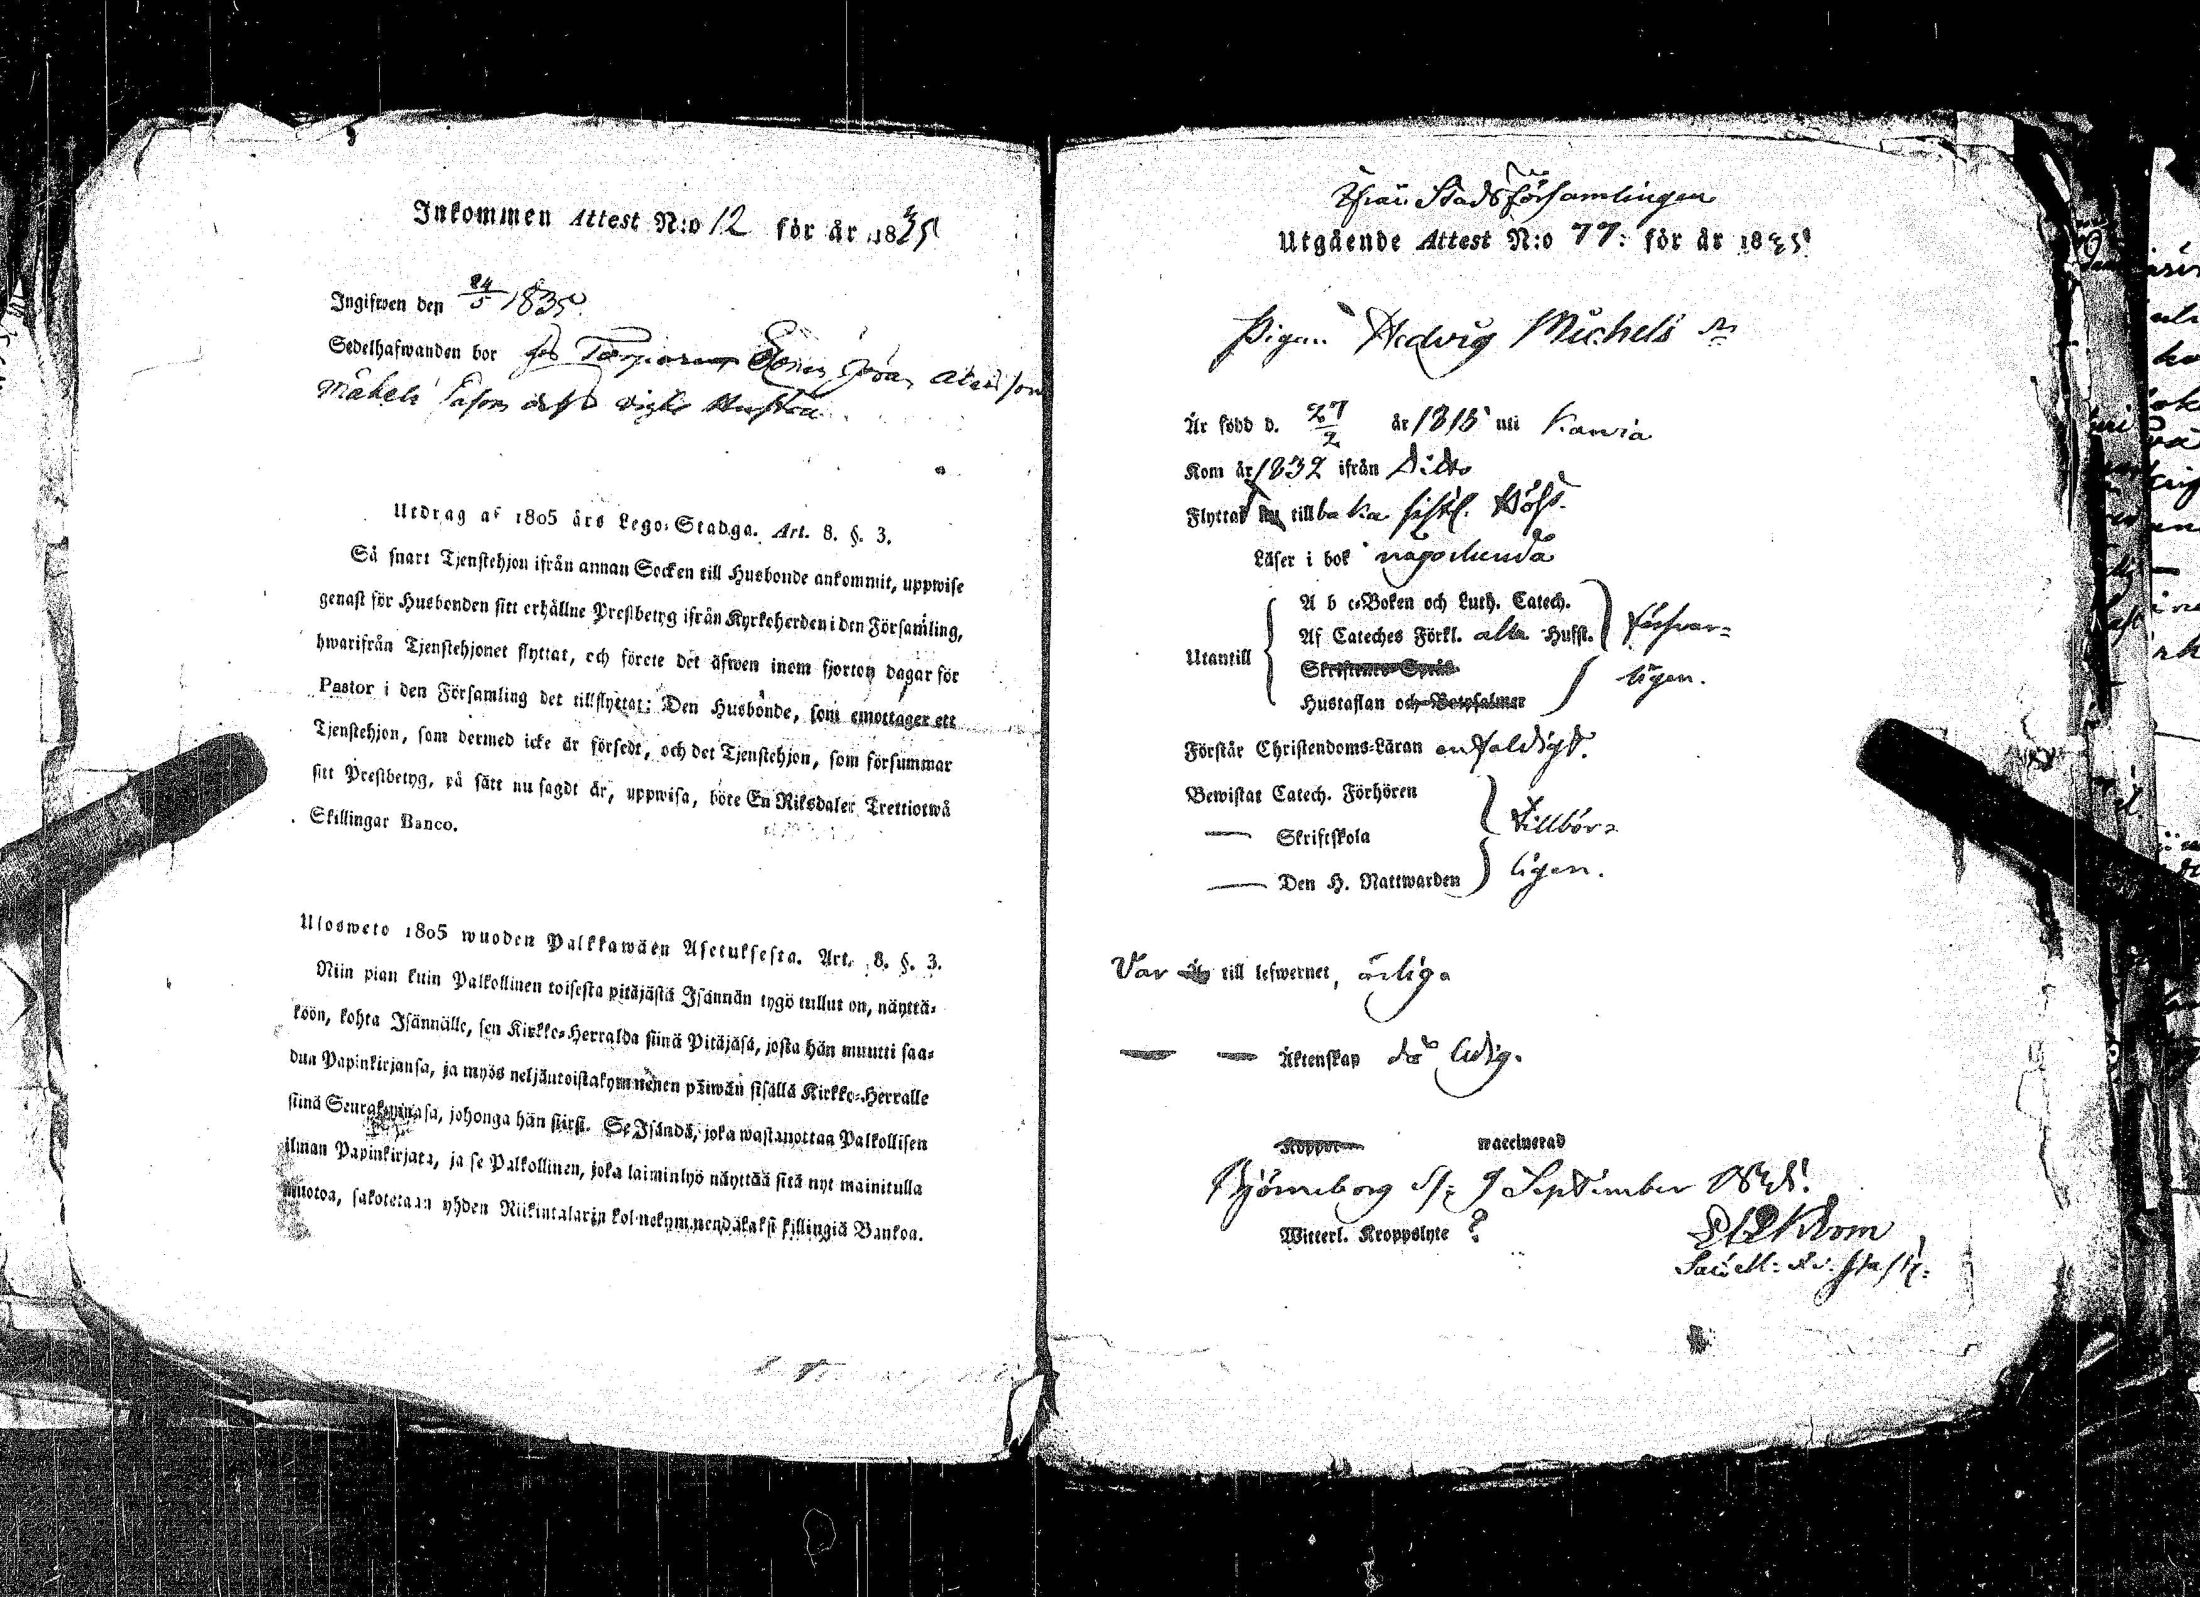 Inkommen Attest N:o 12 för år 1835
Ingifwen den 24/5 1835.
Sedelhafwanden bor hos Torparen Johan
Mäkelä såsom dess wigde Hustru.
Utdrag af 1805 års Lego-Stadga. Art. 8. §. 3.
Så snart Tjenstehjon ifrån annan Socken till Husbonde ankommit, uppwise
genast för Husbonden sitt erhållne Prestbetyg ifrån Kyrkoherden i den Församling,
hwarifrån Tjenstehjonet flyttat, och förete det äfwen inom fjorton dagar för
Pastor i den Församling det tillflyttat; Den Husbonde, som emottager ett
Tjenstehjon, som dermed icke är försedt, och det Tjenstehjon, som försummar
sitt Prestbetyg, på sätt nu sagdt är, uppwisa, böte En Riksdaler Trettiotwå
Skillingar Banco.
Uloswete 1805 wuoden Palkkawäen Asetuksesta. Art. 8. §. 3.
Niin pian kuin Palkollinen toisesta pitäjästä Isännän tygö tullut on, näyttä-
köön, kohta Isännälle, sen Kirkko-Herralda siinä Pitäjäsä, josta hän muutti saa-
dun Papinkirjansa, ja myös neljäntoistakymmenen päiwän sisällä Kirkko-Herralle
siinä Seurakunnasa, johonga hän siirsi. Se Isändä, joka wastanottaa Palkollisen
ilman Papinkirjata, ja se Palkollinen, joka laiminlyö näyttää sitä nyt mainitulla
muotoa, sakotetaan yhden Riikintalarin kolmekymmendäkaksi killingiä Bankoa.
Ifrån Stadsförsamlingen
Utgående Attest N:o 77: för år 1835
Pigan Hedvig Michels dr
Är född d. 27/2 år 1815 uti Kanvia
Kom år 1832 ifrån Dito
Flyttat nu tillbaka sistl. Höst.
Läser i bok någorlunda
A b c-Boken och Luth. Catech.
Af Cateches Förkl. alla Husst. försvar-
Utantill Skriftenes Språk ligen.
Hustaflan och Botpsalmer
Förstår Christendoms-Läran enfaldigt.
Bewistat Catech. Förhören
— Skriftskola Tillbör-
— Den H. Nattwarden ligen.
Var till lefwernet, ärliga
— — Äktenskap då ledig.
Koppor waccinerad
Björneborg d. 9 September 1835.
Witterl. Kroppslyte ?